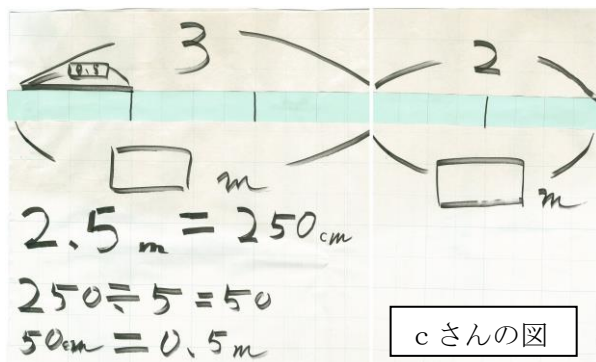 3
0.5
m
2
m
2.5m=250cm
250÷5=50
50cm=0.5m
cさんの図